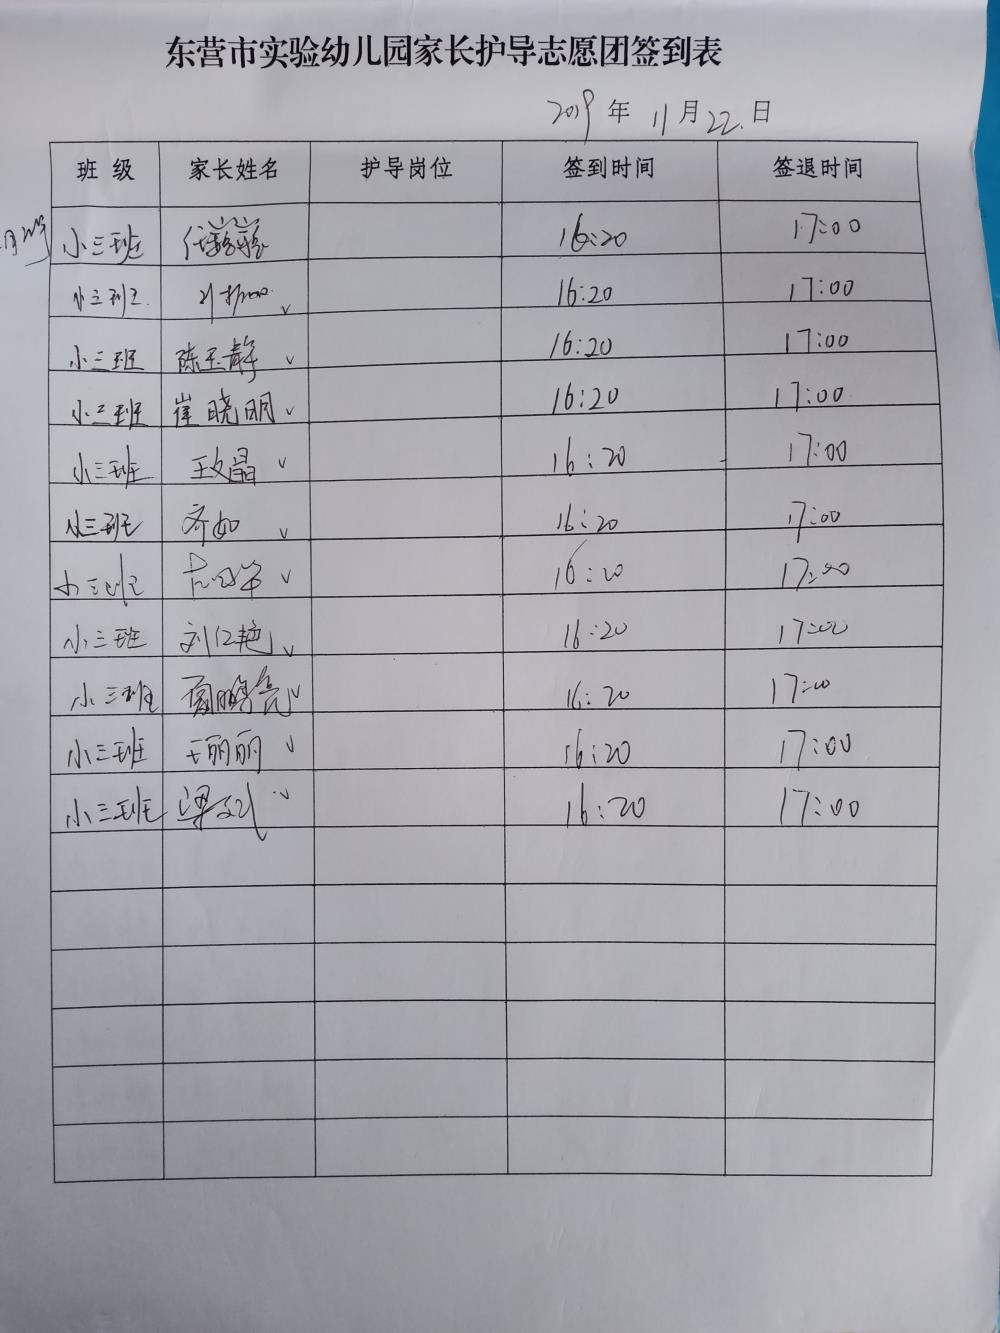 东营市实验幼儿园家长护导志愿团签到表
2019年11月22日
班级 家长姓名 护导岗位 签到时间 签退时间
小三班 16:20 17:00
小三班 16:20 17:00
小三班 陈玉静 16:20 17:00
小三班 崔晓明 16:20 17:00
小三班 王文晶 16:20 17:00
小三班 齐如 16:20 17:00
小三班 16:20 17:00
小三班 刘仁艳 16:20 17:00
小三班 16:20 17:00
小三班 王丽丽 16:20 17:00
小三班 梁 16:20 17:00